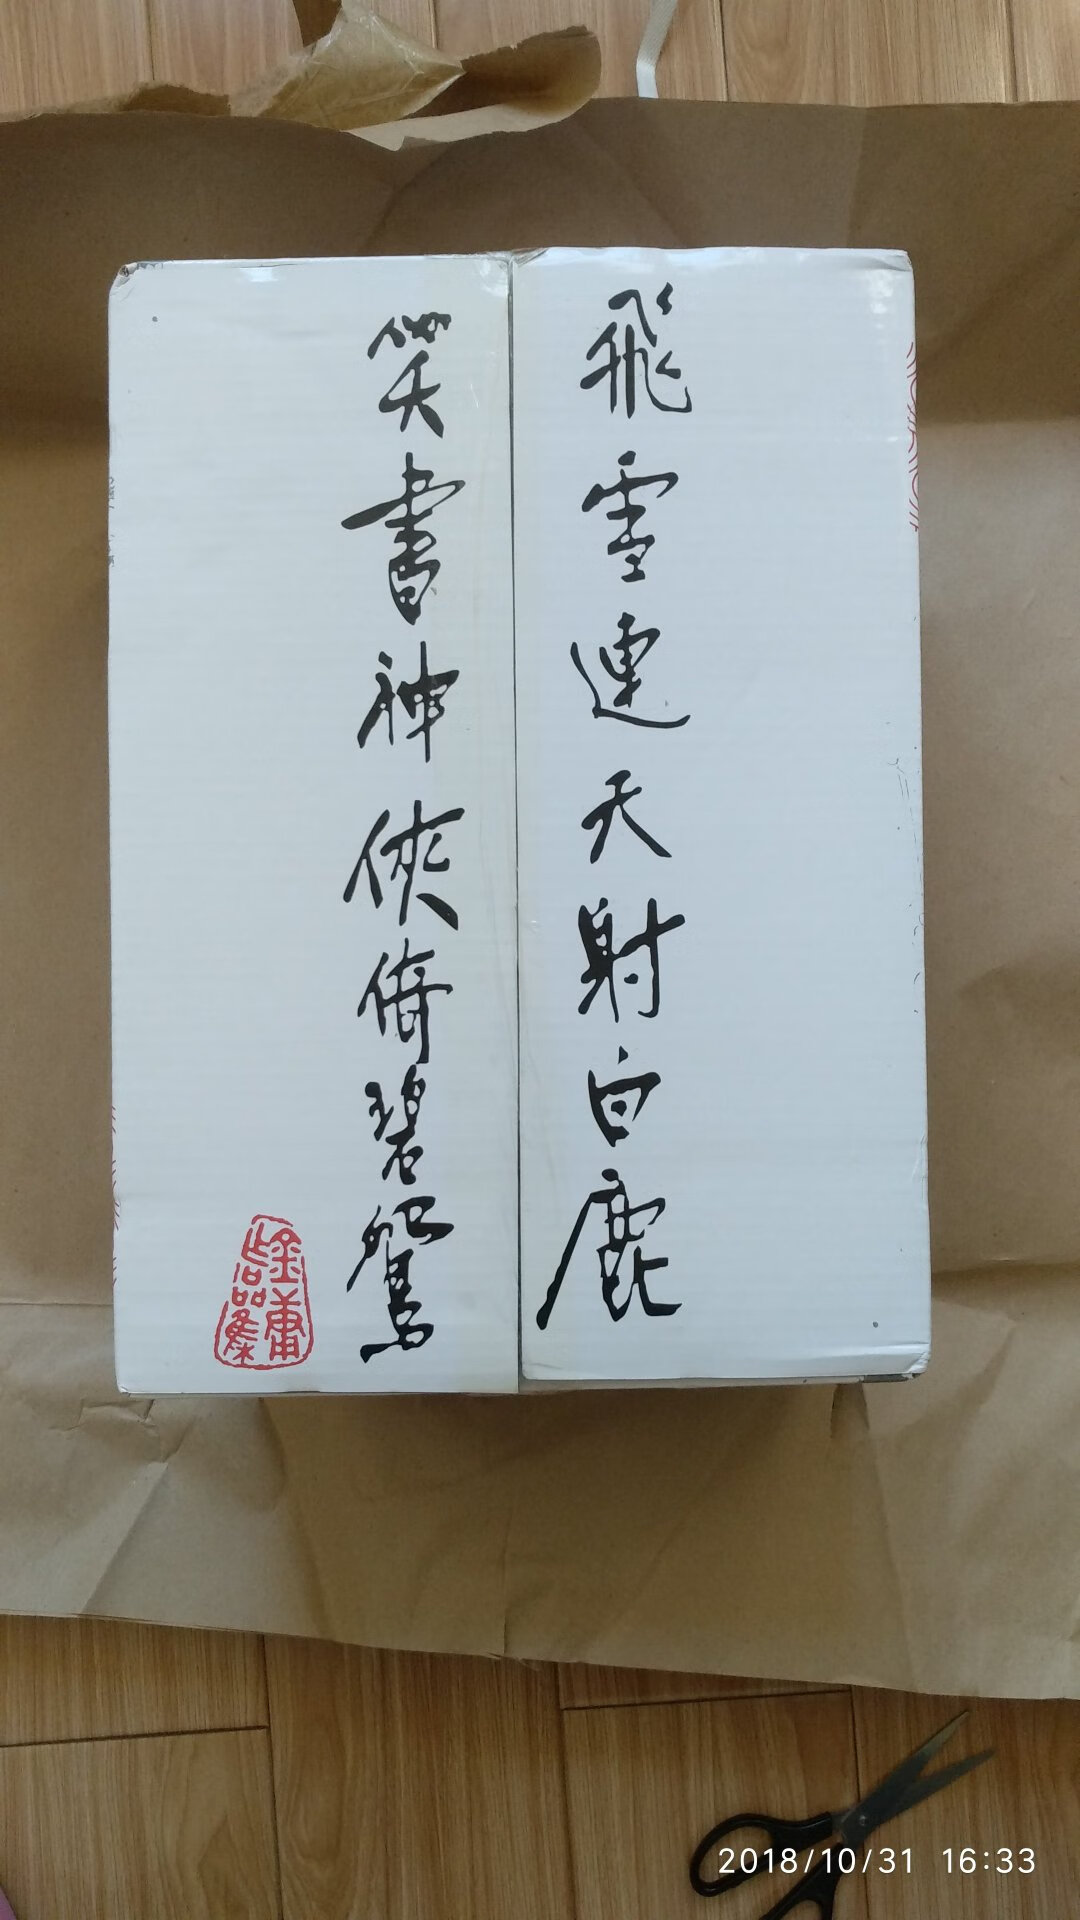 飛雪連天射白鹿
笑書神俠倚碧鴛
金庸
作品集
2018/10/31 16:33